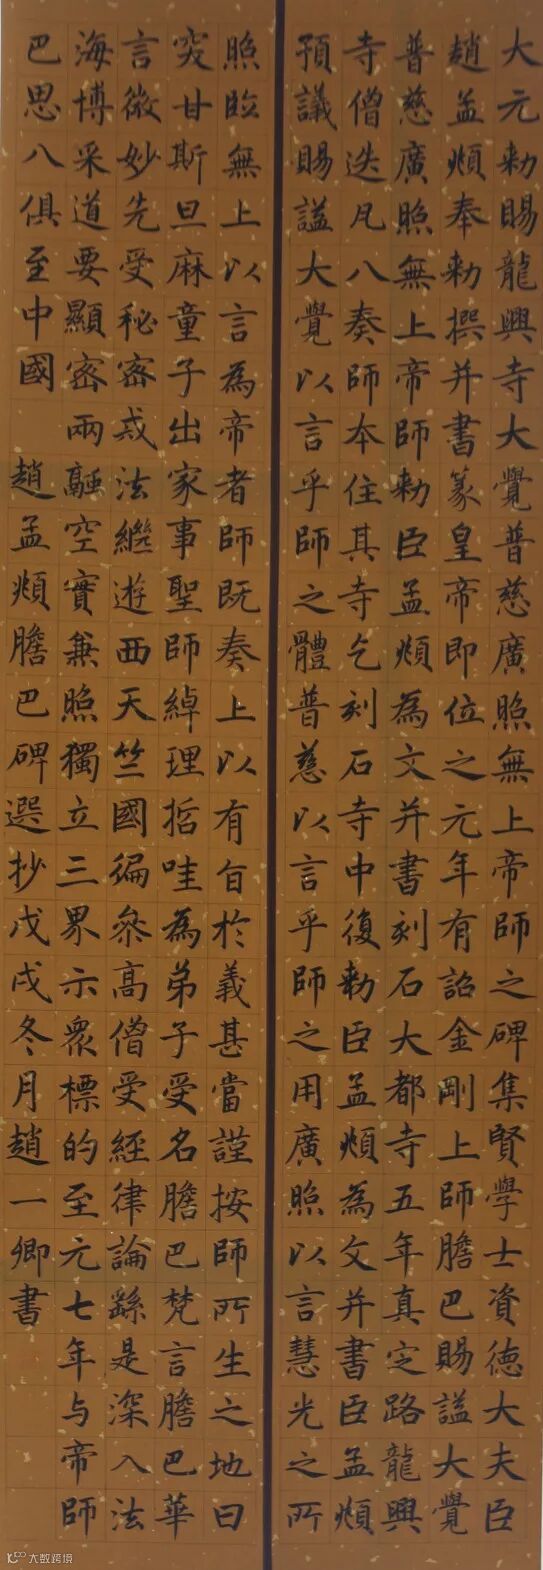 大元勅賜龍興寺大覺普慈廣照無上帝師之碑集賢學士資德大夫臣
趙孟頫奉勅撰并書篆皇帝即位之元年有詔金剛上師膽巴賜謚大覺
普慈廣照無上帝師勅臣孟頫為文并書刻石大都寺五年真定路龍興
寺僧迭凡八奏師本住其寺乞刻石寺中復勅臣孟頫為文并書臣孟頫
預議賜謚大覺以言乎師之體普慈以言乎師之用廣照以言慧光之所
照臨無上以言為帝者師既奏上以有旨於義甚當謹按師所生之地曰
突甘斯旦麻童子出家事聖師綽理哲哇為弟子受名膽巴梵言膽巴華
言微妙先受秘密戒法繼遊西天竺國徧參高僧受經律論繇是深入法
海博采道要顯密兩融空實兼照獨立三界示眾標的至元七年与帝師
巴思八俱至中國 趙孟頫膽巴碑選抄戊戌冬月趙一卿書
大数跨境